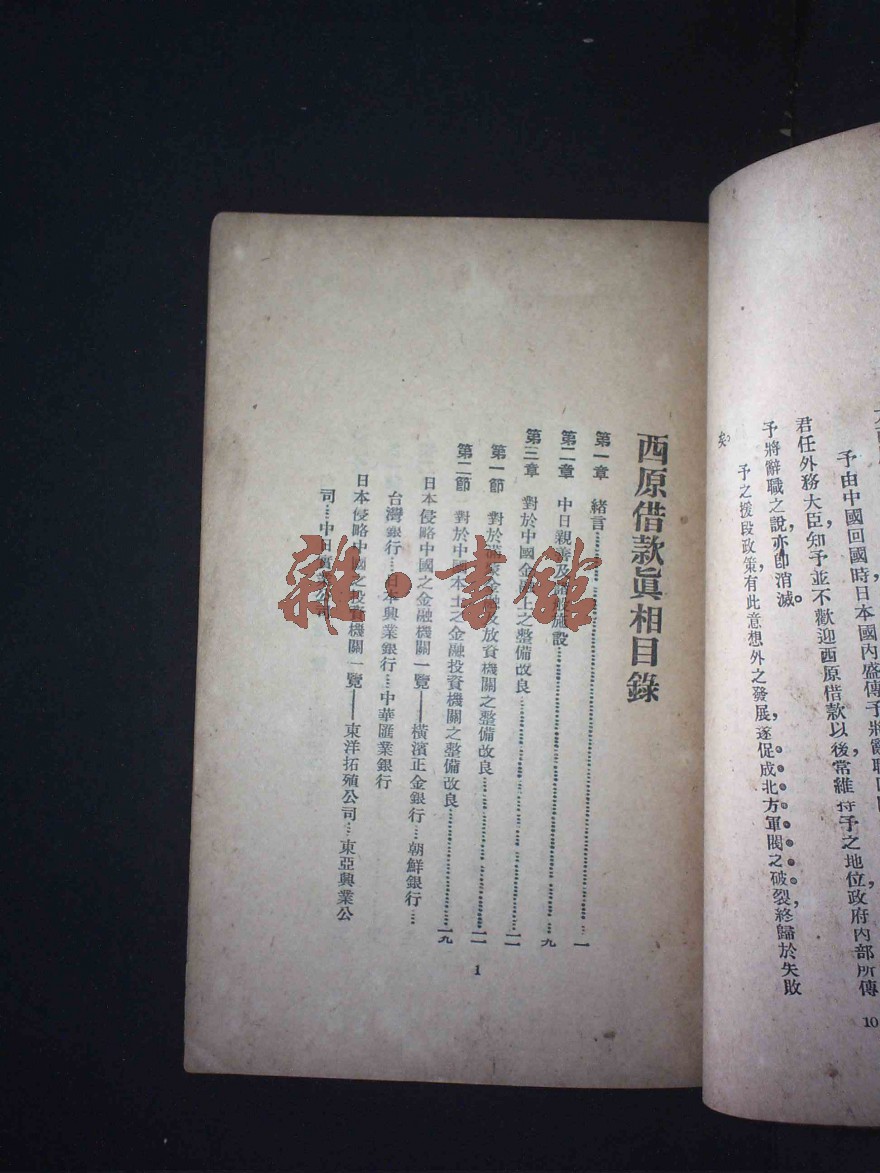 予由中國回國時,日本國內盛傳予將辭職
君任外務大臣,知予並不歡迎西原借款以後常維持予之地位政府內部所傳
予將辭職之說,亦卽消滅。
予之援段政策,有此意想外之發展,遂促成北方軍閥之破裂,終歸於失敗
矣。
10
西原借款眞相目錄
第一章 緒言……一
第二章 中日親善及施設……九
第三章 對於中國金融上之整備改良……一一
第一節 對於滿蒙金融及放資機關之整備改良……一一
第二節 對於中國本土之金融投資機關之整備改良……一九
日本侵略中國之金融機關一覽——橫濱正金銀行…朝鮮銀行…
台灣銀行…日本興業銀行…中華匯業銀行
日本侵略中國之投資機關一覽——東洋拓殖公司…東亞興業公
司…中日實業公司
1
雜·書館